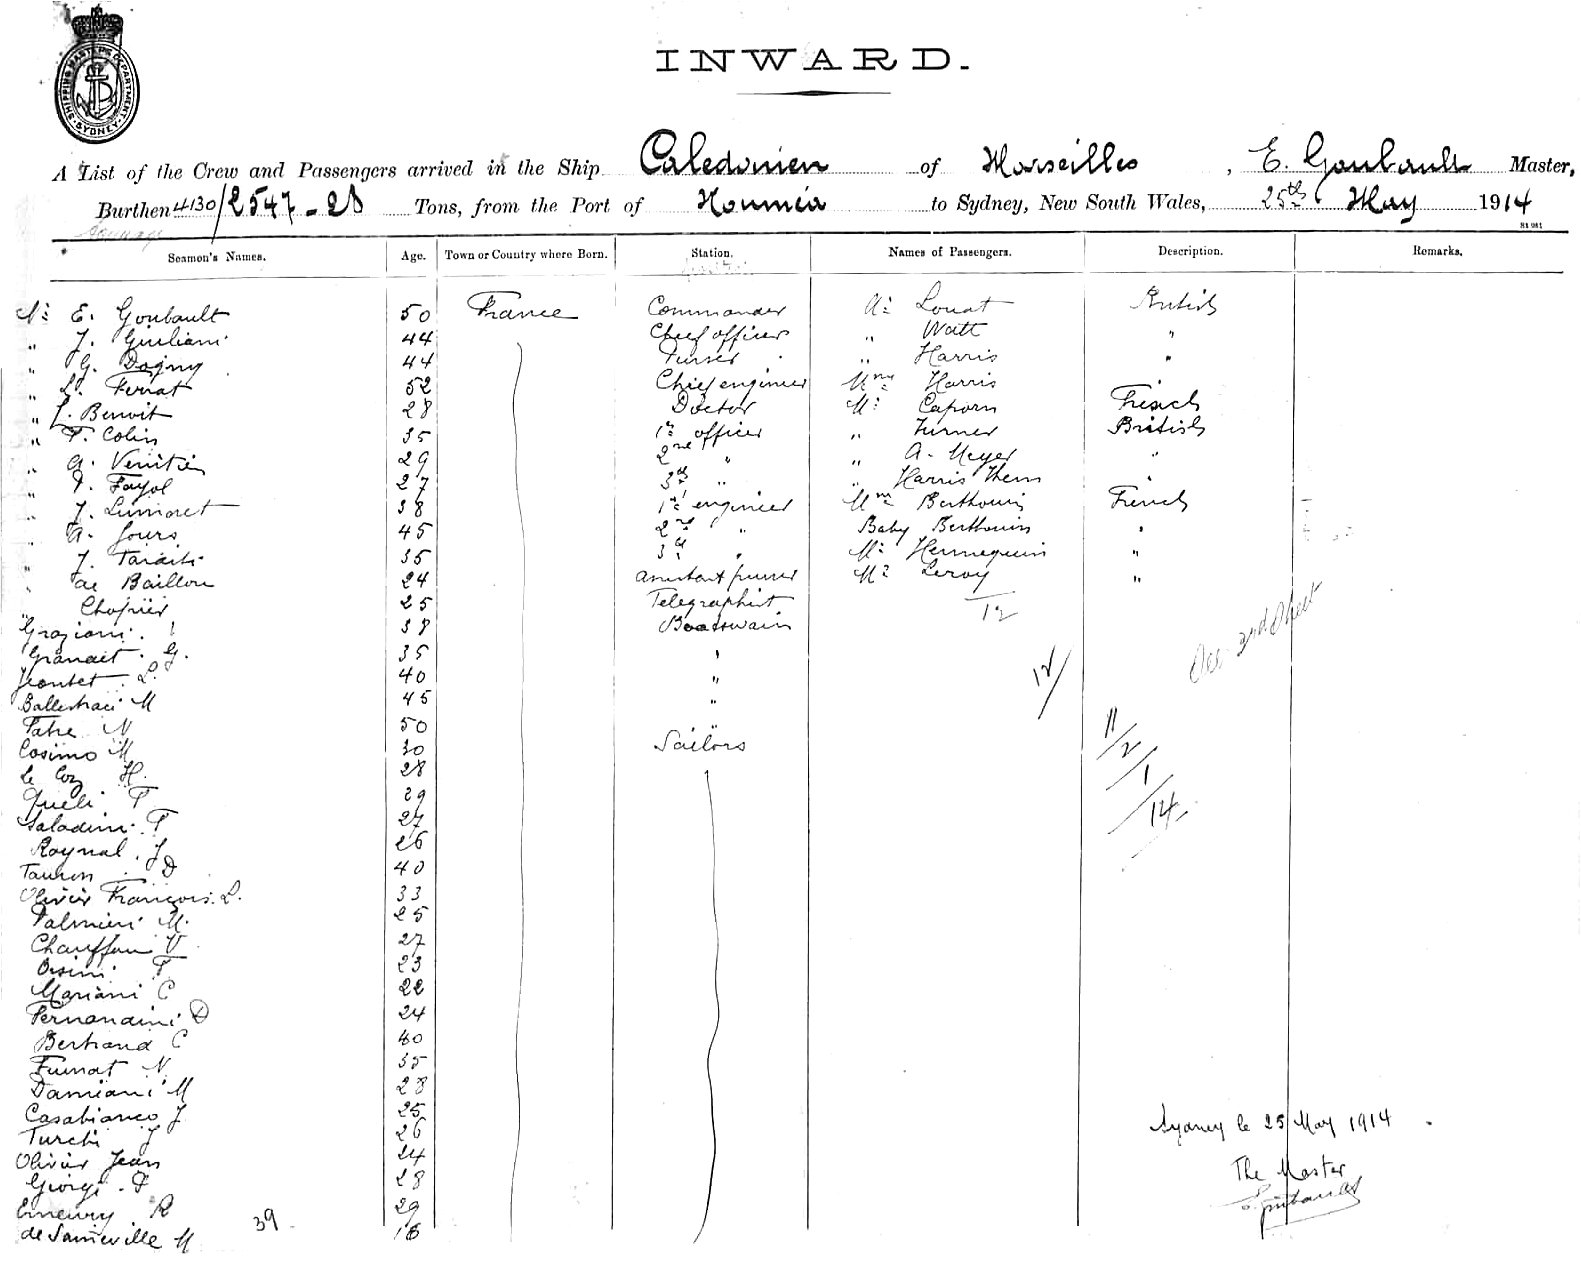 SHIPPING MASTER'S DEPARTMENT. SYDNEY
INWARD.
A List of the Crew and Passengers arrived in the Ship Caledonien of Marseilles, E. Goubault Master,
Burthen 4130/2547-28 Tons, from the Port of Nouméa to Sydney, New South Wales, 25th May 1914
Seamen's Names. Age. Town or Country where Born. Station. Names of Passengers. Description. Remarks.
Mr E. Goubault 50 France Commander Mr Louat British
" J. Giuliani 44 Chief officer " Watt "
" G. Dogny 44 Purser " Harris "
" L. Ferrat 52 Chief engineer Mme Harris
" J. Benoit 28 Doctor Mr Caporn French
" F. Colin 35 1st officer " Turner British
" A. Venitien 29 2nd " " A. Meyer "
" P. Fayol 27 3rd " " Harris Thern "
" J. Limoret 38 1st engineer Mme Berthouin French
" A. Jours 45 2nd " Baby Berthouin "
" J. 35 3d " Mr Hennequin "
" de Baillou 24 Assistant purser Mr Leroy "
" Chopier 25 Telegraphist 12
Graziani. 38 Boatswain
Granait. G. 35 "
Jeantet. L. 40 "
Ballestraci M 45 "
Patre N 50 "
Cosimo M 30 Sailors
Le Coz H. 28
Queli F 29
Saladini. F 27
Raynal. J 26
Tauron. D 40
Olivier François. L. 33
Palmieri M. 25
Chauffour V 27
Orsini F 23
Mariani C 22
Fernandini D 24
Bertrand C 40
Fumat N. 35
Damiani M 28
Casabianco J 25
Turchi J 26
Olivier Jean 24
Giorgi. P 28
Emeury R 29
de Sameville M 16
39
12/
See 2nd Sheet
11/
2/
1/
14
Sydney le 25 May 1914
The Master
E. Goubault